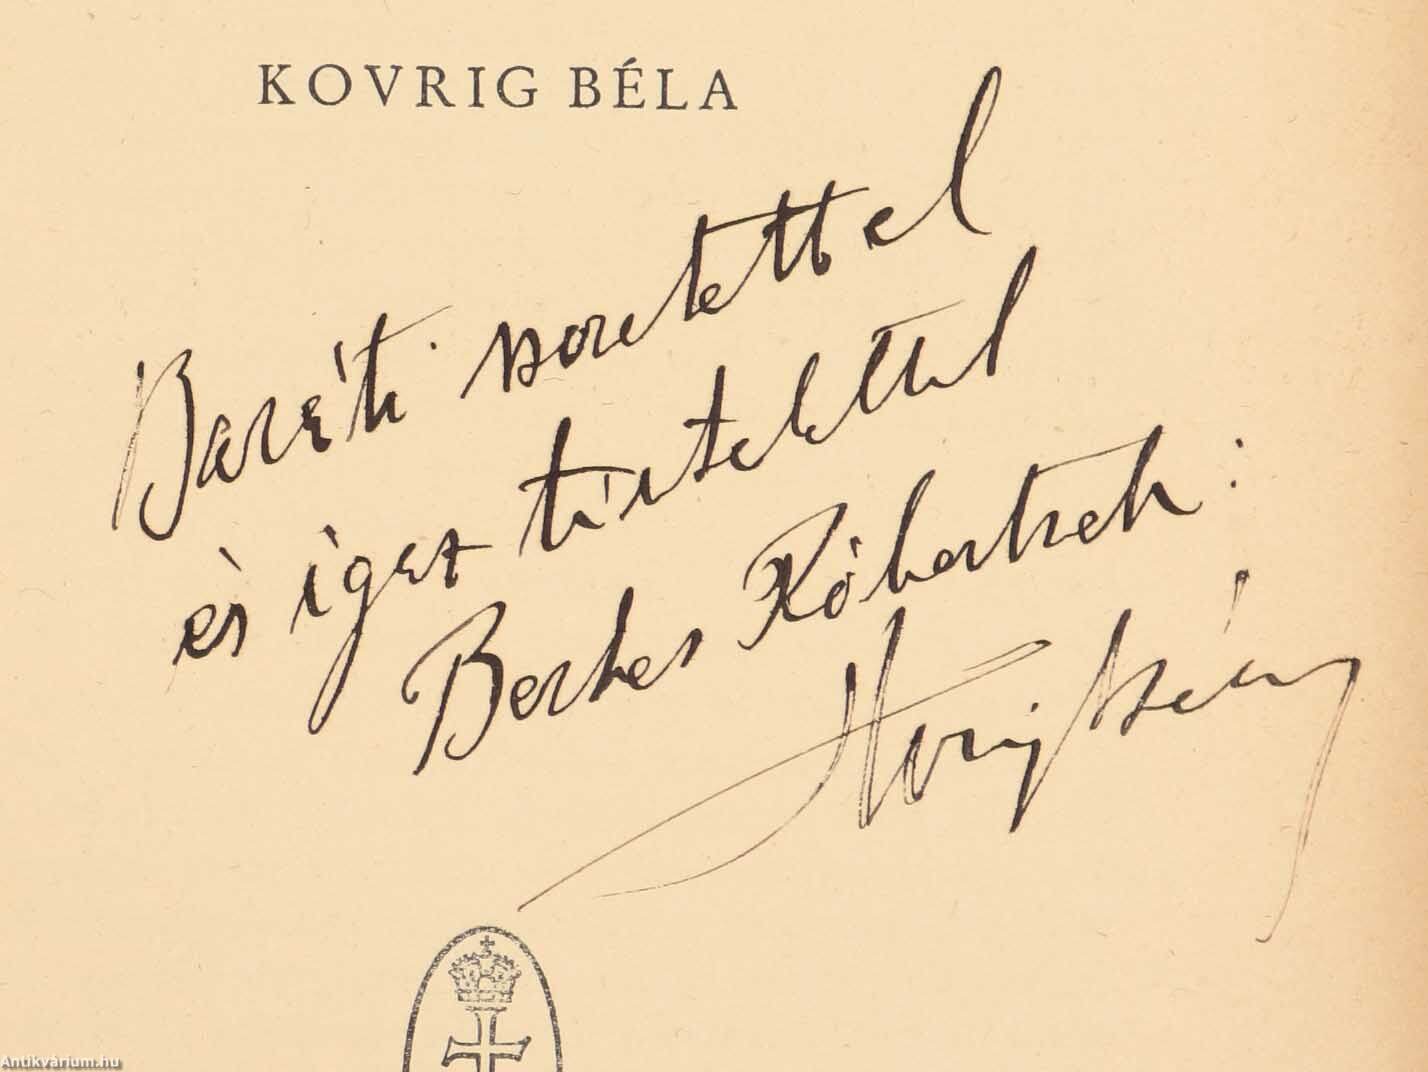 KOVRIG BÉLA
Baráti szeretettel
és igaz tisztelettel
Berkes Róbertnek:
Kovrig Béla
Antikvárium.hu